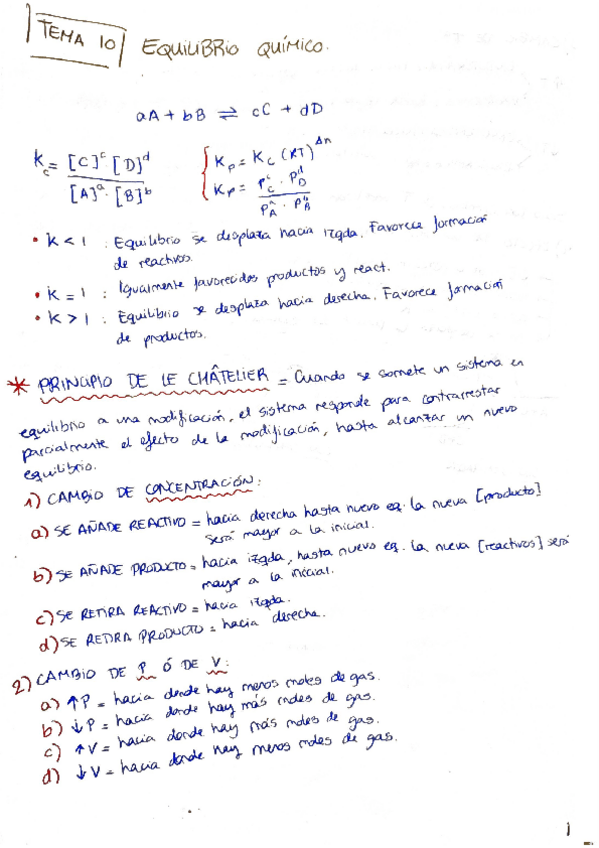 TEMA 10 EQUILIBRIO QUÍMICO.
aA + bB ⇌ cC + dD
Kc = [C]^c · [D]^d / [A]^a · [B]^b
Kp = Kc (RT)^Δn
Kp = P_C^c · P_D^d / P_A^a · P_B^b
• K < 1 : Equilibrio se desplaza hacia izqda. Favorece formación
de reactivos.
• K = 1 : Igualmente favorecidos productos y react.
• K > 1 : Equilibrio se desplaza hacia derecha. Favorece formación
de productos.
* PRINCIPIO DE LE CHÂTELIER = Cuando se somete un sistema en
equilibrio a una modificación, el sistema responde para contrarrestar
parcialmente el efecto de la modificación, hasta alcanzar un nuevo
equilibrio.
1) CAMBIO DE CONCENTRACIÓN:
a) SE AÑADE REACTIVO = hacia derecha hasta nuevo eq. la nueva [producto]
será mayor a la inicial.
b) SE AÑADE PRODUCTO = hacia izqda, hasta nuevo eq. la nueva [reactivos] será
mayor a la inicial.
c) SE RETIRA REACTIVO = hacia izqda.
d) SE RETIRA PRODUCTO = hacia derecha.
2) CAMBIO DE P Ó DE V:
a) ↑P = hacia donde hay menos moles de gas.
b) ↓P = hacia donde hay más moles de gas.
c) ↑V = hacia donde hay más moles de gas.
d) ↓V = hacia donde hay menos moles de gas.
1